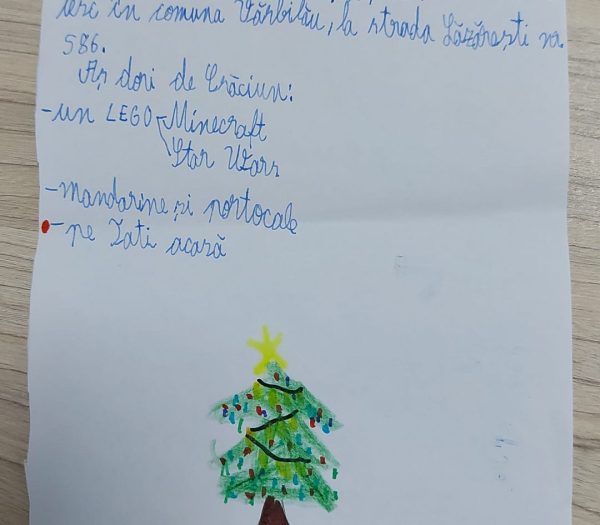 în comuna Vărbilău, la strada Lăzărești nr.
586.
Aș dori de Crăciun:
-un LEGO-Minecraft
Star Wars
-mandarine și portocale
-pe Tati acară